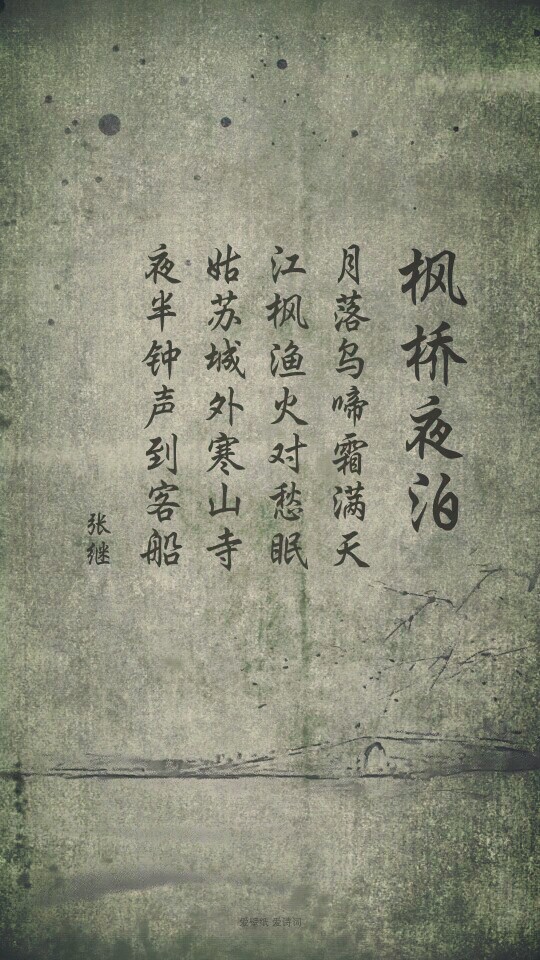 枫桥夜泊
月落乌啼霜满天
江枫渔火对愁眠
姑苏城外寒山寺
夜半钟声到客船
张继
爱壁纸 爱诗词